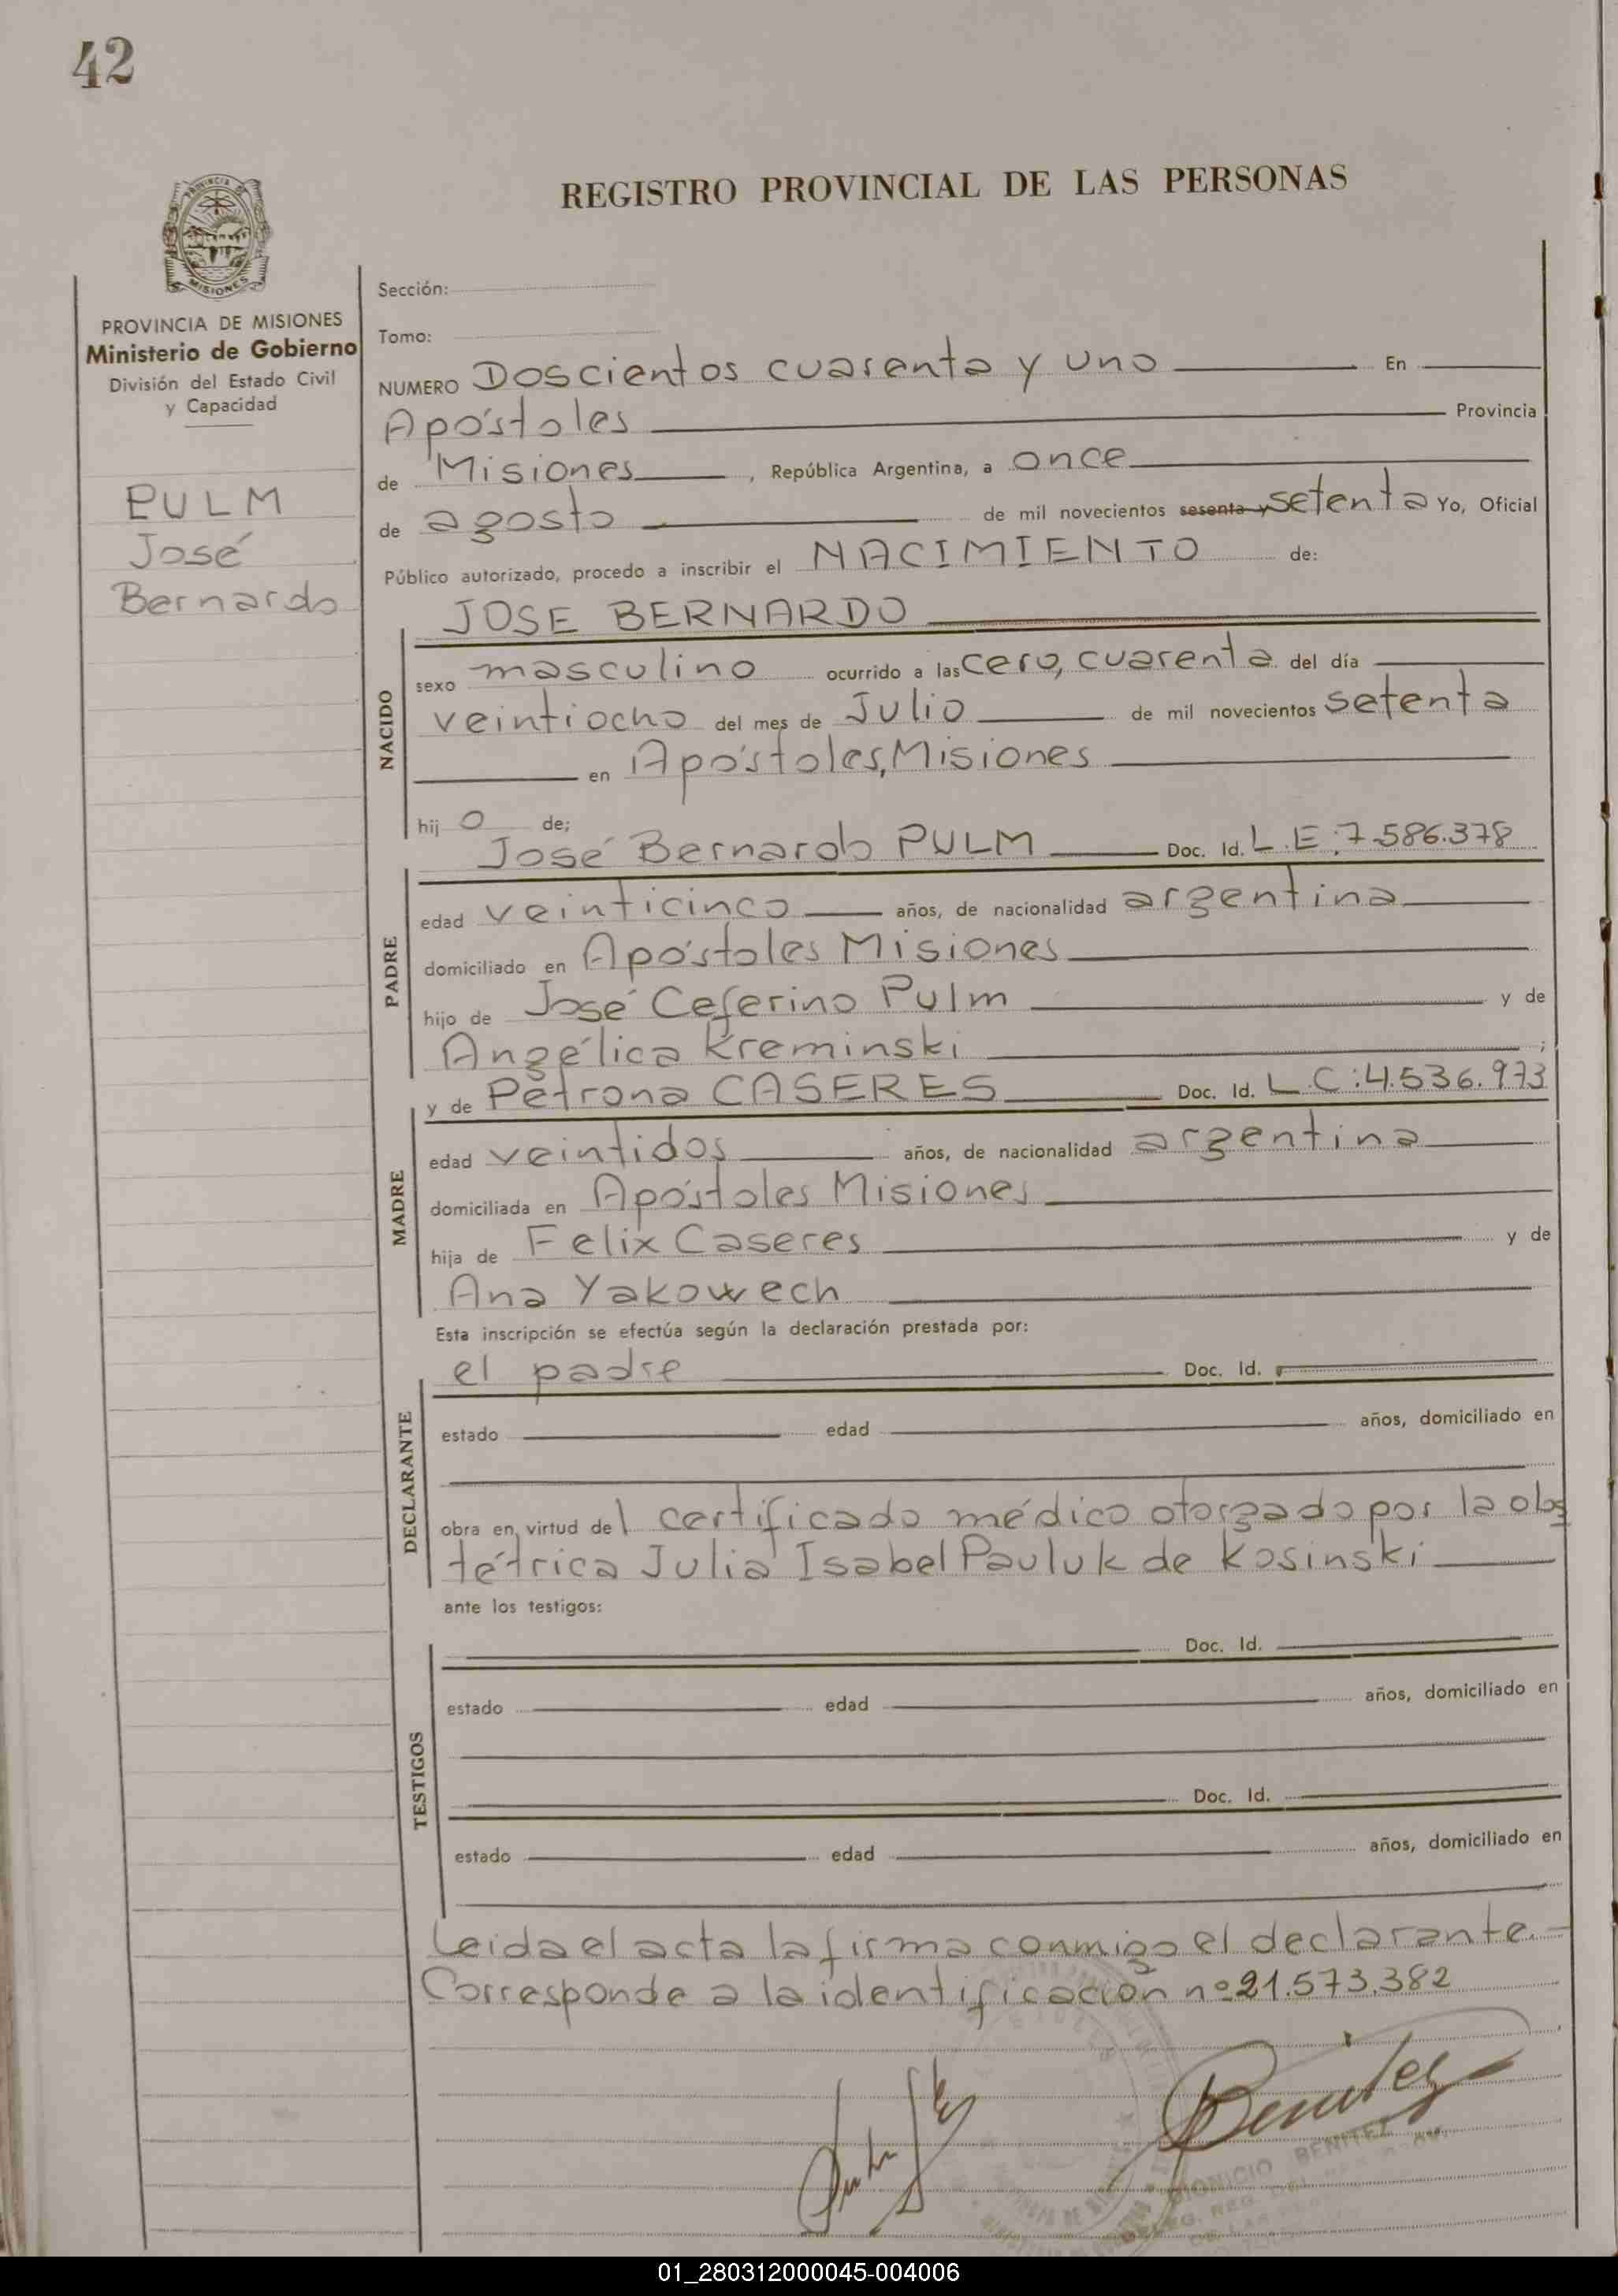 42
REGISTRO PROVINCIAL DE LAS PERSONAS
PROVINCIA DE MISIONES
Ministerio de Gobierno
División del Estado Civil
y Capacidad
PULM
José
Bernardo
Sección:
Tomo:
NUMERO Doscientos cuarenta y uno En
Apóstoles Provincia
de Misiones, República Argentina, a once
de agosto de mil novecientos sesenta y setenta Yo, Oficial
Público autorizado, procedo a inscribir el NACIMIENTO de:
JOSE BERNARDO
NACIDO
sexo masculino ocurrido a las cero, cuarenta del día
veintiocho del mes de Julio de mil novecientos setenta
en Apóstoles, Misiones
hij o de;
José Bernardo PULM Doc. Id. L.E.:7.586.378
PADRE
edad veinticinco años, de nacionalidad argentina
domiciliado en Apóstoles Misiones
hijo de José Ceferino Pulm y de
Angélica Kreminski ;
y de Petrona CASERES Doc. Id. L.C:4.536.973
MADRE
edad veintidos años, de nacionalidad argentina
domiciliada en Apóstoles Misiones
hija de Felix Caseres y de
Ana Yakowech
Esta inscripción se efectúa según la declaración prestada por:
el padre Doc. Id.
DECLARANTE
estado edad años, domiciliado en
obra en virtud del certificado médico otorgado por la obs
tétrica Julia Isabel Pauluk de Kosinski
ante los testigos:
TESTIGOS
Doc. Id.
estado edad años, domiciliado en
Doc. Id.
estado edad años, domiciliado en
Leida el acta la firma conmigo el declarante.-
Corresponde a la identificación nº 21.573.382
Benitez
DIONICIO BENITEZ
01_280312000045-004006